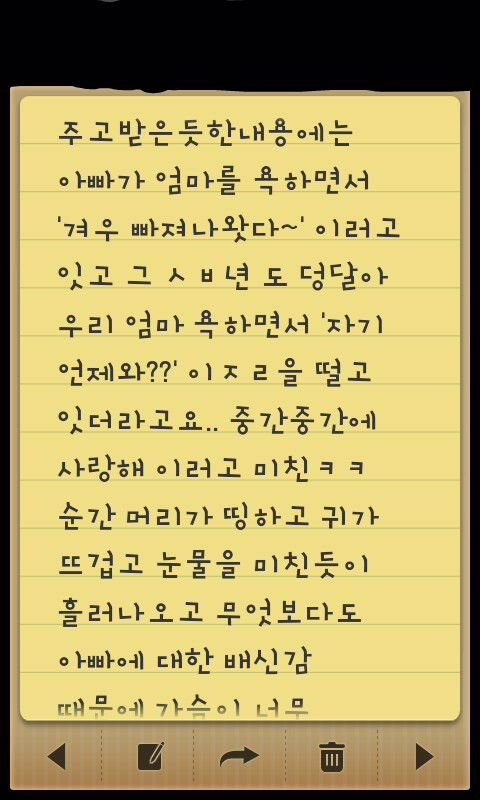 주고받은듯한내용에는
아빠가 엄마를 욕하면서
'겨우 빠져나왓다~' 이러고
잇고 그 ㅅㅂ년도 덩달아
우리엄마 욕하면서 '자기
언제와??' 이ㅈㄹ을 떨고
잇더라고요.. 중간중간에
사랑해 이러고 미친ㅋㅋ
순간 머리가 띵하고 귀가
뜨겁고 눈물을 미친듯이
흘러나오고 무엇보다도
아빠에 대한 배신감
때문에 가슴이 너무